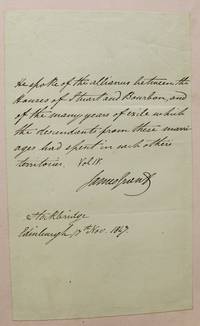 He spoke of the alliances between the
Houses of Stuart and Bourbon, and
of the many years of exile which
the descendants from these marri-
ages had spent in each others
territories. Vol IV.
James Grant
Edinburgh, 17th Nov. 1847.